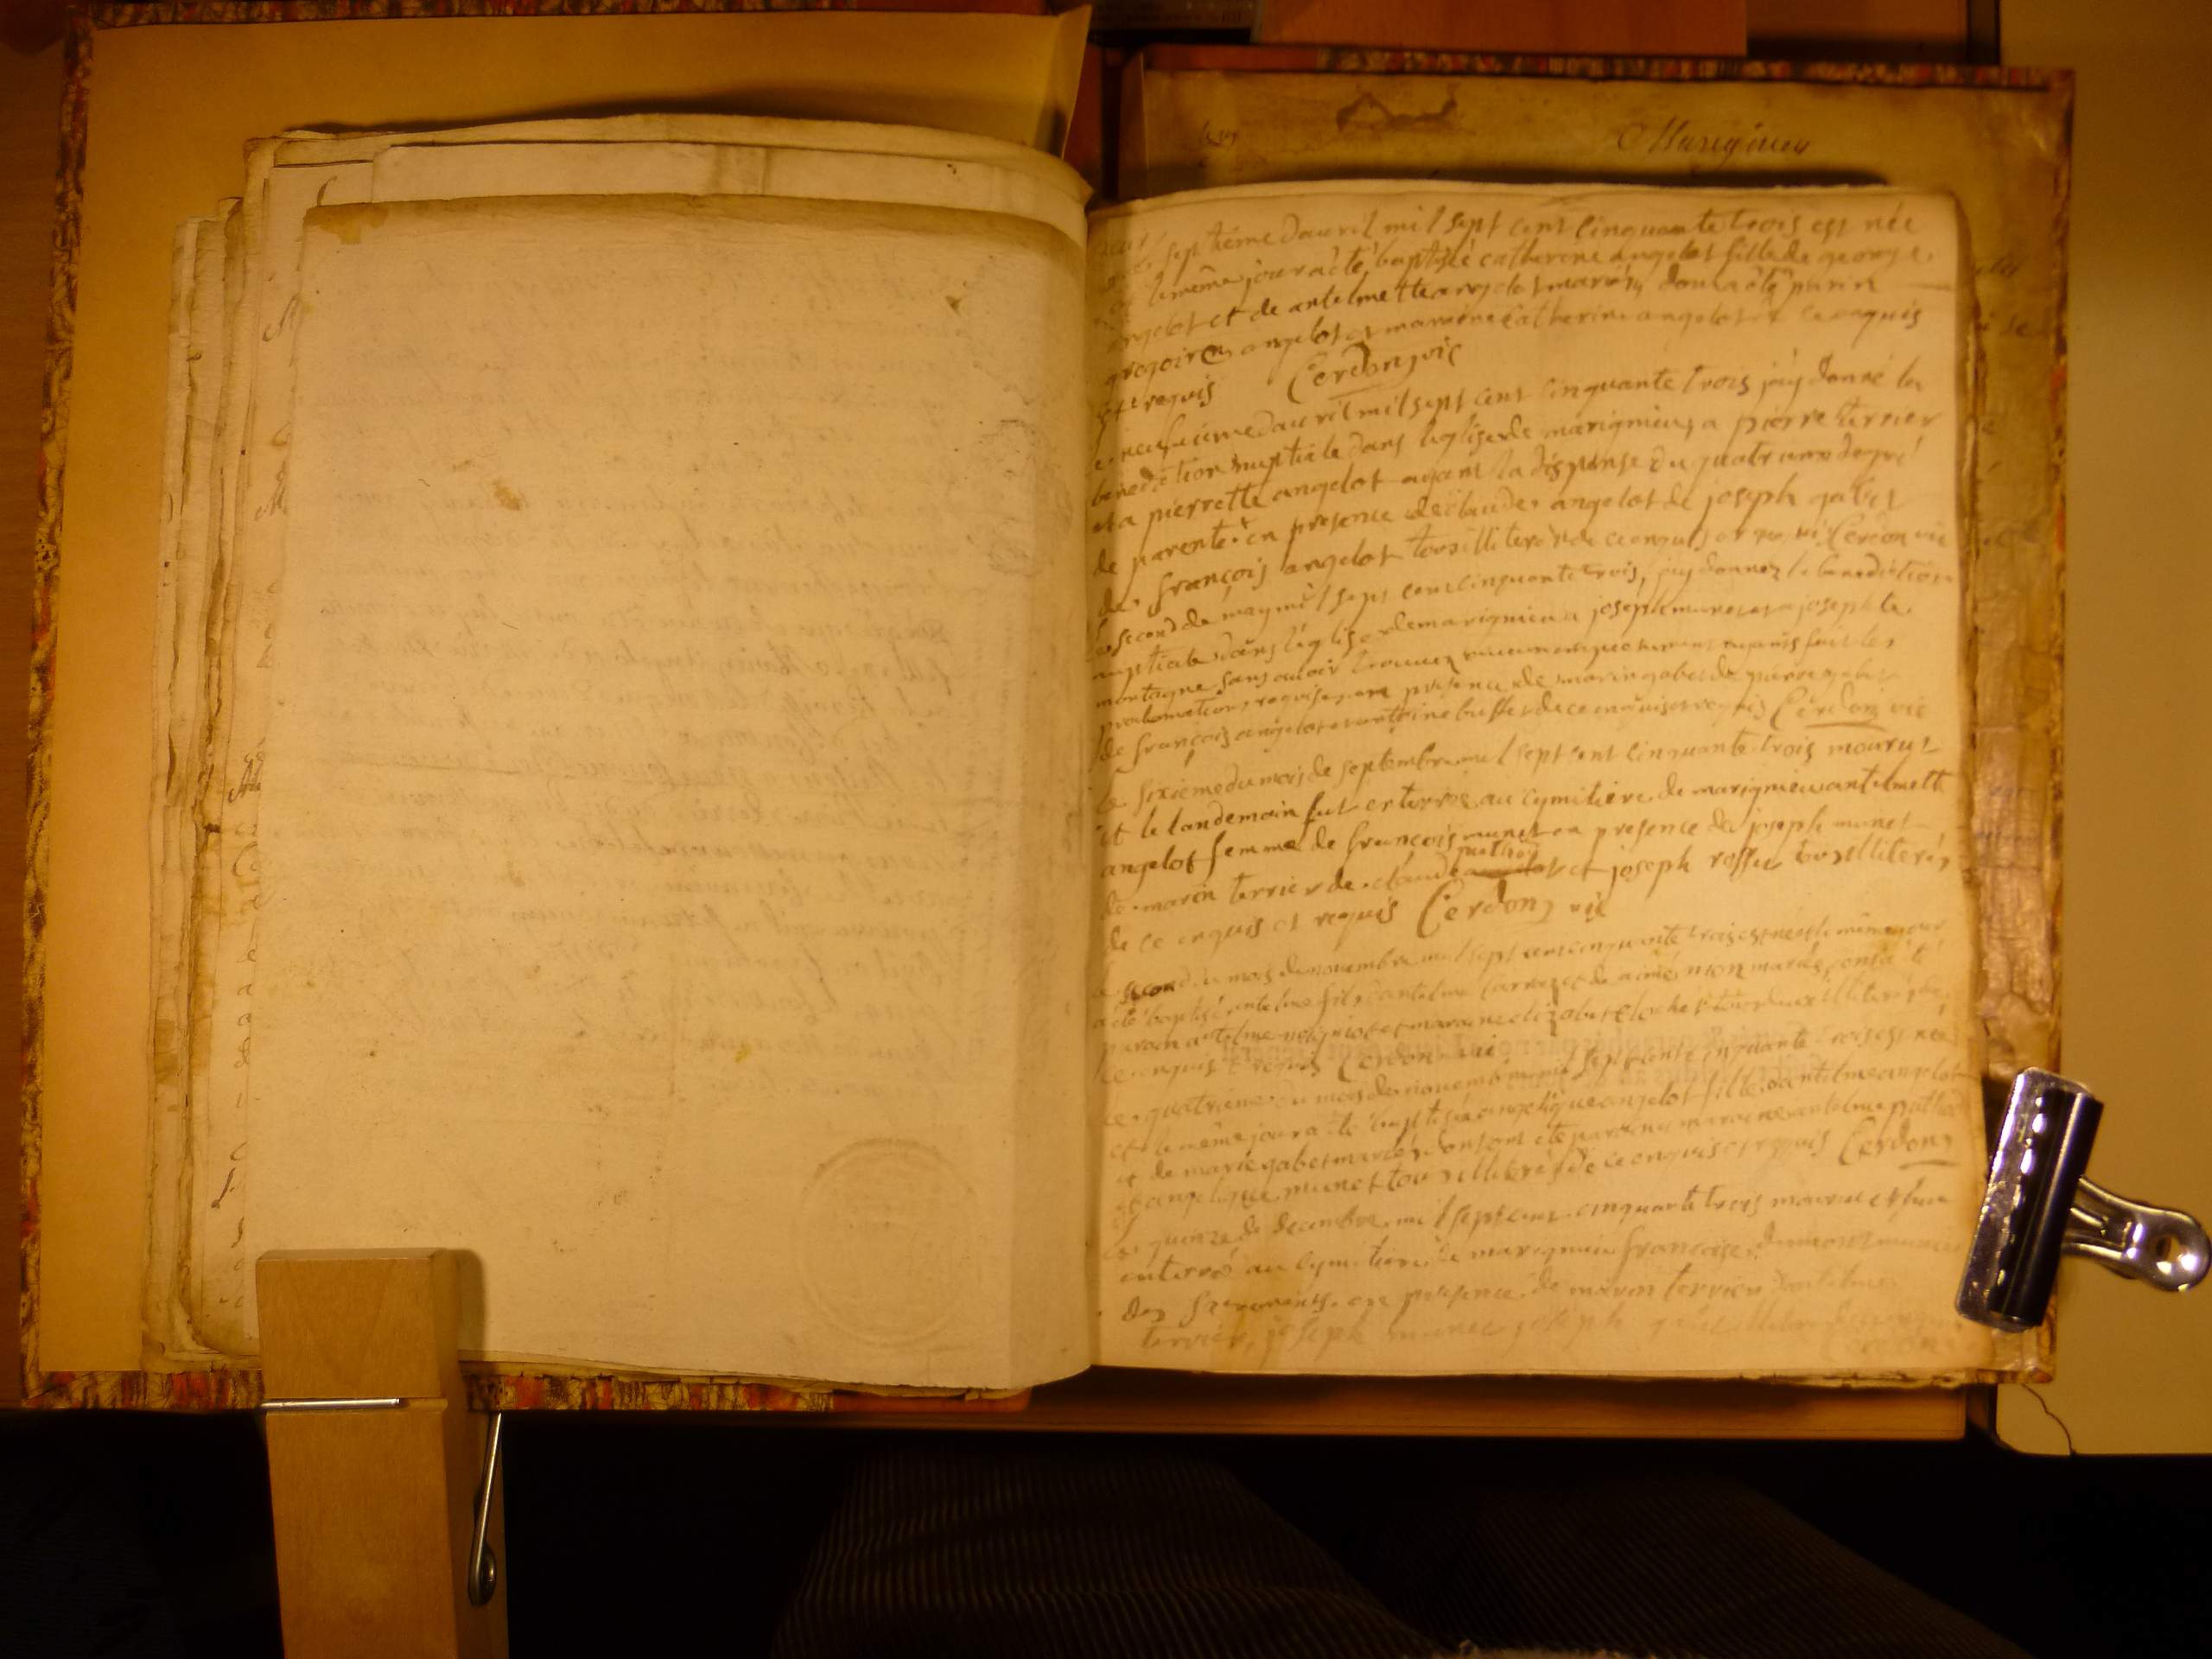 Marignieu
septième d'avril mil sept cent cinquante trois est née
le même jour a été baptisée catherine angelot fille de george
angelot et de antelmette angelot mariés, dont a été parin
gregoire angelot et maraine catherine angelot de ce enquis
et requis Cerdon, vic
neufvieme d'avril mil sept cent cinquante trois j'ay donné la
benediction nuptiale dans leglise de marignieu, a pierre terrier
et a pierrette angelot ayant la dispense du quatrieme degré
de parenté en presence de claude angelot de joseph gabet
de françois angelot tous illiterés de ce enquis et requis Cerdon vic
le second de may mil sept cent cinquante trois, j'ay donnez la benediction
nuptiale dans l'église de marignieu a joseph munet et a josephte
montagne sans avoir trouvez aucun empechement ayants fait les
proclamations requises, en presence de marin gabet de pierre gabet
de françois angelot et antoine buffet de ce enquis et requis Cerdon vic
le sixieme du mois de septembre mil sept cent cinquante trois mourut
et le landemain fut enterrée au cymitiere de marignieu antelmette
angelot femme de françois munet en presence de joseph munet
de marin terrier de claude puthod et joseph rosset tous illiterés
de ce enquis et requis Cerdon, vic
le second du mois de novembre mil sept cent cinquante trois est né et le même jour
a été baptisé antelme fils d'antelme et de aimé mariés, ont été
parain antelme et maraine elizabet tous deux illiterés de
ce enquis et requis Cerdon vic
le quatrieme du mois de novembre mil sept cent cinquante trois est née
et le même jour a été baptisée angelique angelot fille d'antelme angelot
et de marie gabet mariés dont ont été parain et maraine antelme puthod
et angelique munet tous illiterés de ce enquis et requis Cerdon,
le quinze de decembre mil sept cent cinquante trois mourut et fut
enterré au cymitiere de marignieu françoise dumont munie
des sacrements en presence de marin terrier d'antelme
terrier, joseph munet joseph
Cerdon